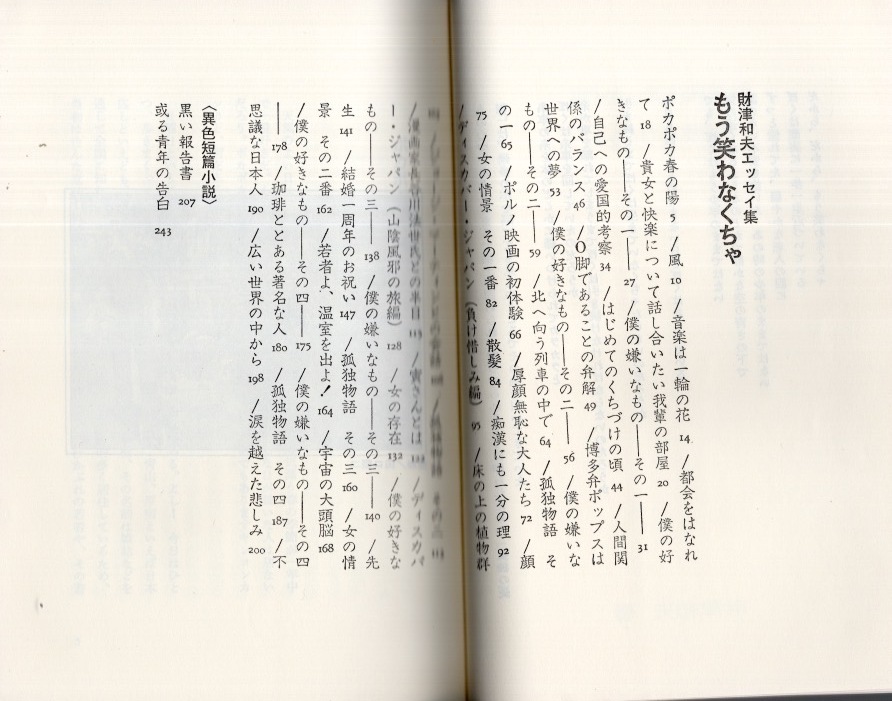 財津和夫エッセイ集
もう笑わなくちゃ
ポカポカ春の陽 5 /風 10 /音楽は一輪の花 14 /都会をはなれ
て 18 /貴女と快楽について話し合いたい我輩の部屋 20 /僕の好
きなもの——その一—— 27 /僕の嫌いなもの——その一—— 31
/自己への愛国的考察 34 /はじめてのくちづけの頃 44 /人間関
係のバランス 46 /O脚であることの弁解 49 /博多弁ポップスは
世界への夢 53 /僕の好きなもの——その二—— 56 /僕の嫌いな
もの——その二—— 59 /北へ向う列車の中で 64 /孤独物語 そ
の一 65 /ポルノ映画の初体験 66 /厚顔無恥な大人たち 72 /顔
75 /女の情景 その一番 82 /散髪 84 /痴漢にも一分の理 92
/ディスカバー・ジャパン(負け惜しみ編) 95 /床の上の植物群
その二 113
/漫画家長谷川法世氏との半日 115 /寅さんとは 123 /ディスカバ
ー・ジャパン(山陰風邪の旅編) 128 /女の存在 132 /僕の好きな
もの——その三—— 138 /僕の嫌いなもの——その三—— 140 /先
生 141 /結婚一周年のお祝い 147 /孤独物語 その三 160 /女の情
景 その二番 162 /若者よ、温室を出よ! 164 /宇宙の大頭脳 168
/僕の好きなもの——その四—— 175 /僕の嫌いなもの——その四
—— 178 /珈琲ととある著名な人 180 /孤独物語 その四 187 /不
思議な日本人 190 /広い世界の中から 198 /涙を越えた悲しみ 200
〈異色短篇小説〉
黒い報告書 207
或る青年の告白 243